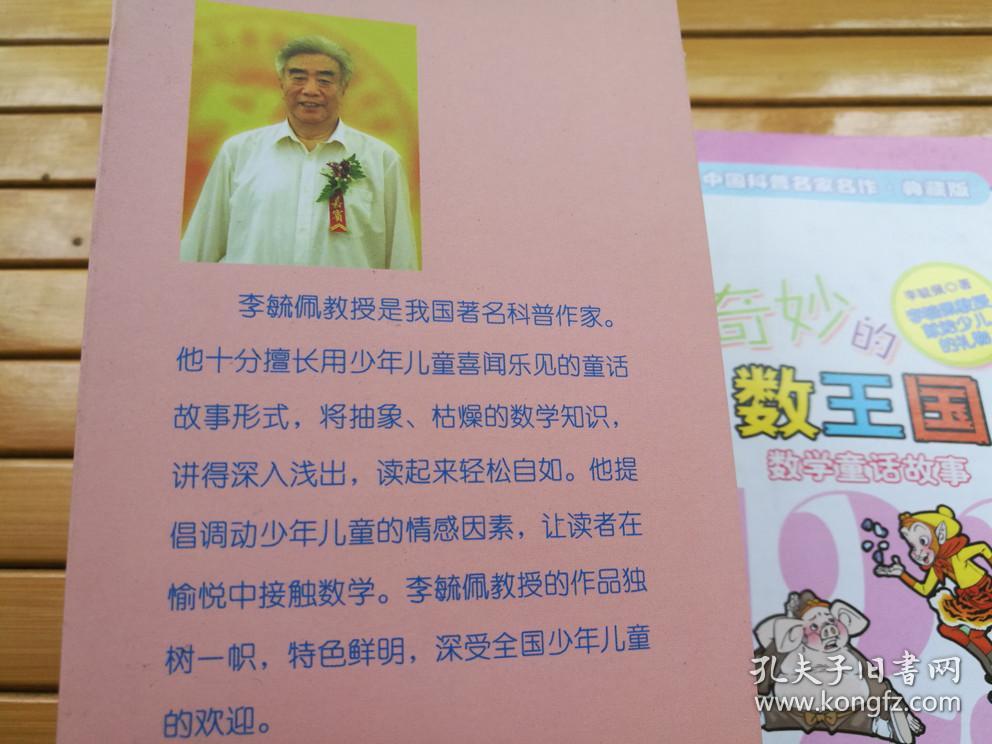 嘉宾
李毓佩教授是我国著名科普作家。
他十分擅长用少年儿童喜闻乐见的童话
故事形式，将抽象、枯燥的数学知识，
讲得深入浅出，读起来轻松自如。他提
倡调动少年儿童的情感因素，让读者在
愉悦中接触数学。李毓佩教授的作品独
树一帜，特色鲜明，深受全国少年儿童
的欢迎。
中国科普名家名作·典藏版
李毓佩◎著
奇妙的
数王国
数学童话故事
123
孔夫子旧书网
www.kongfz.com